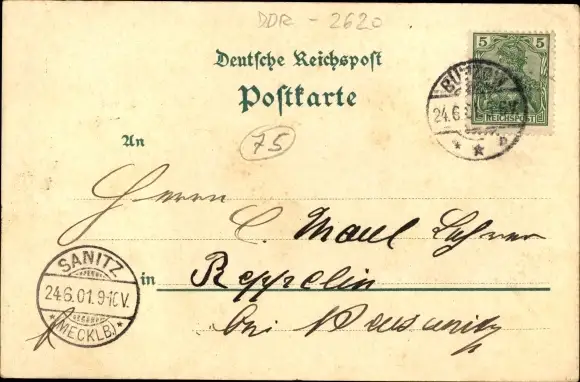 DDR - 2620
Deutsche Reichspost
Postkarte
5 5
REICHSPOST
BÜTZOW
24.6.
An
75
Herrn
C.
in Reppelin
bei
SANITZ
24.6.01.9-10V.
*(MECKLB.)*